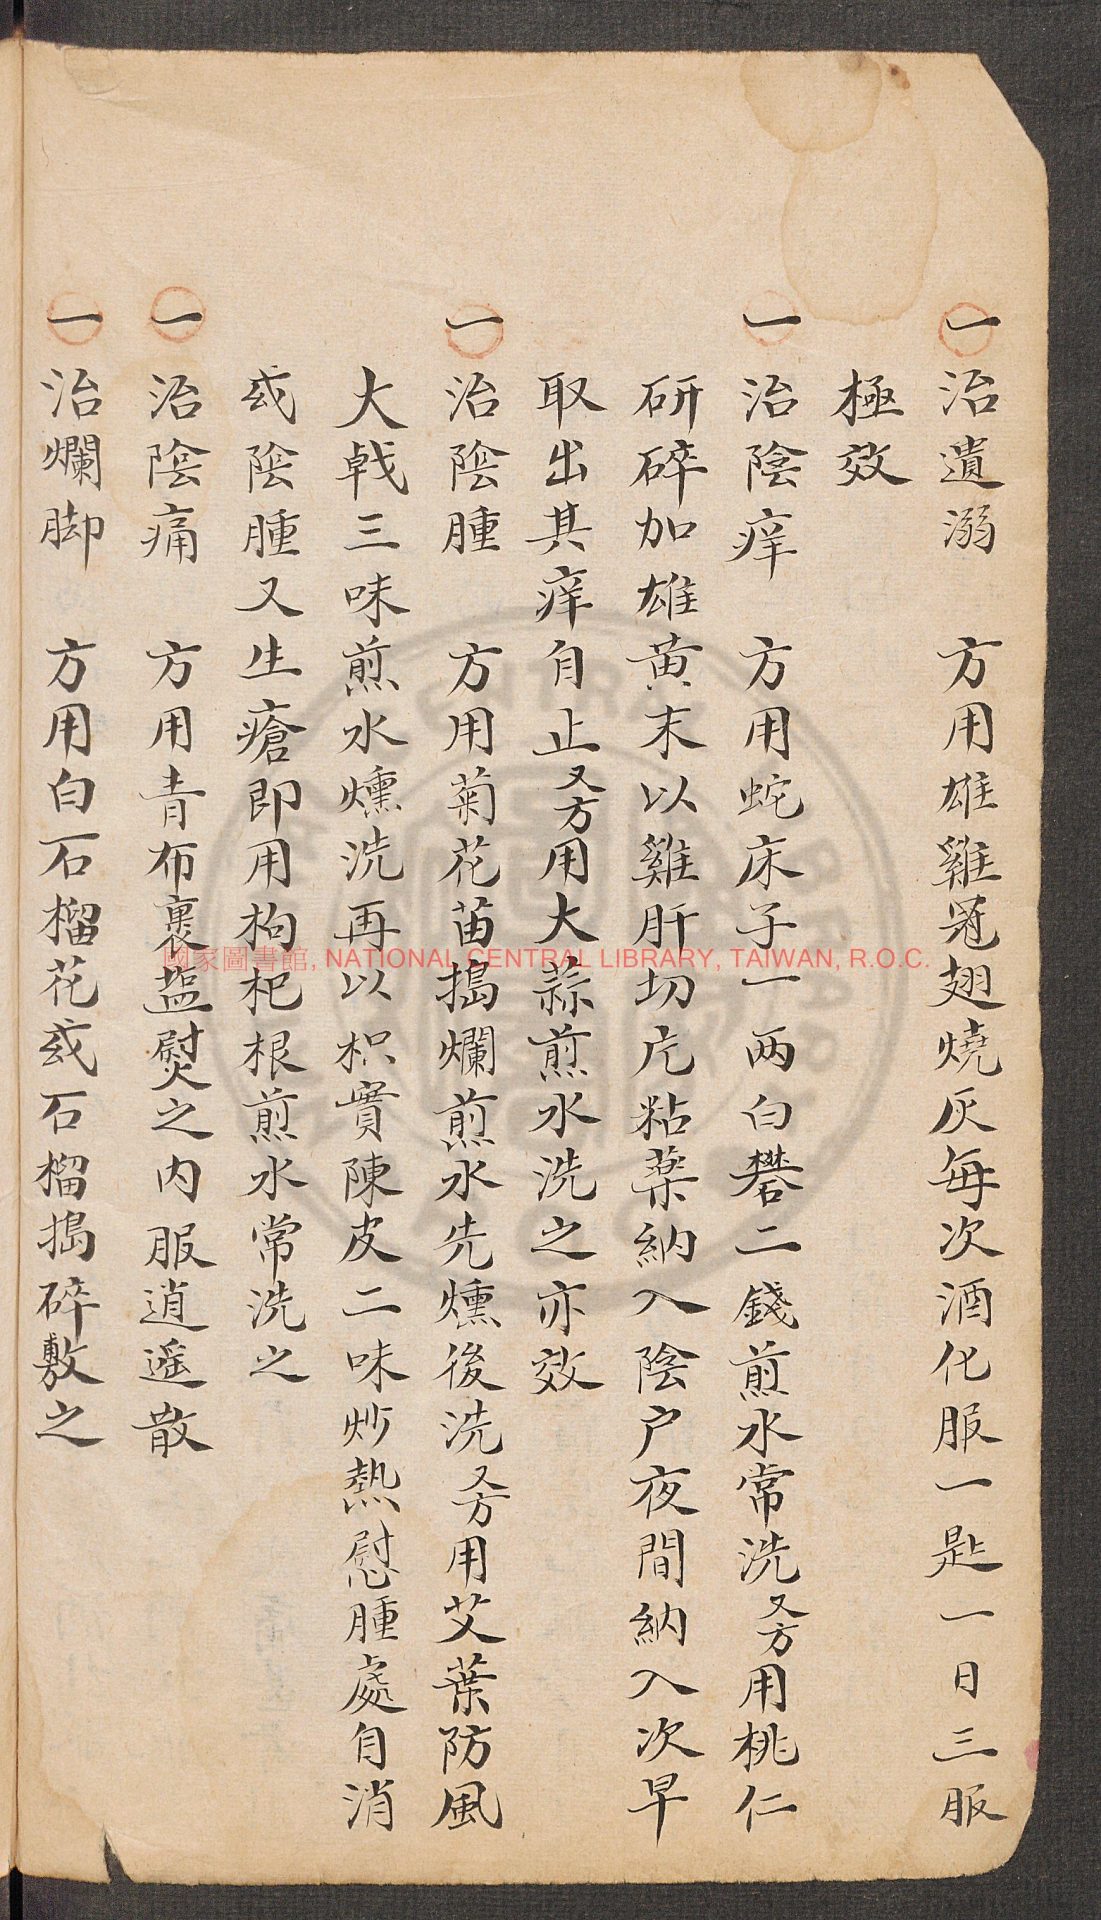 一治遺溺　方用雄雞冠翅燒灰每次酒化服一匙一日三服
極效
一治陰痒　方用蛇床子一兩白礬二錢煎水常洗又方用桃仁
研碎加雄黃末以雞肝切片粘藥納入陰户夜間納入次早
取出其痒自止又方用大蒜煎水洗之亦效
一治陰腫　方用菊花苗搗爛煎水先燻後洗又方用艾葉防風
大戟三味煎水燻洗再以枳實陳皮二味炒熱慰腫處自消
或陰腫又生瘡即用枸杞根煎水常洗之
一治陰痛　方用青布裹塩熨之內服逍遥散
一治爛脚　方用白石榴花或石榴搗碎敷之
國家圖書館, NATIONAL CENTRAL LIBRARY, TAIWAN, R.O.C.